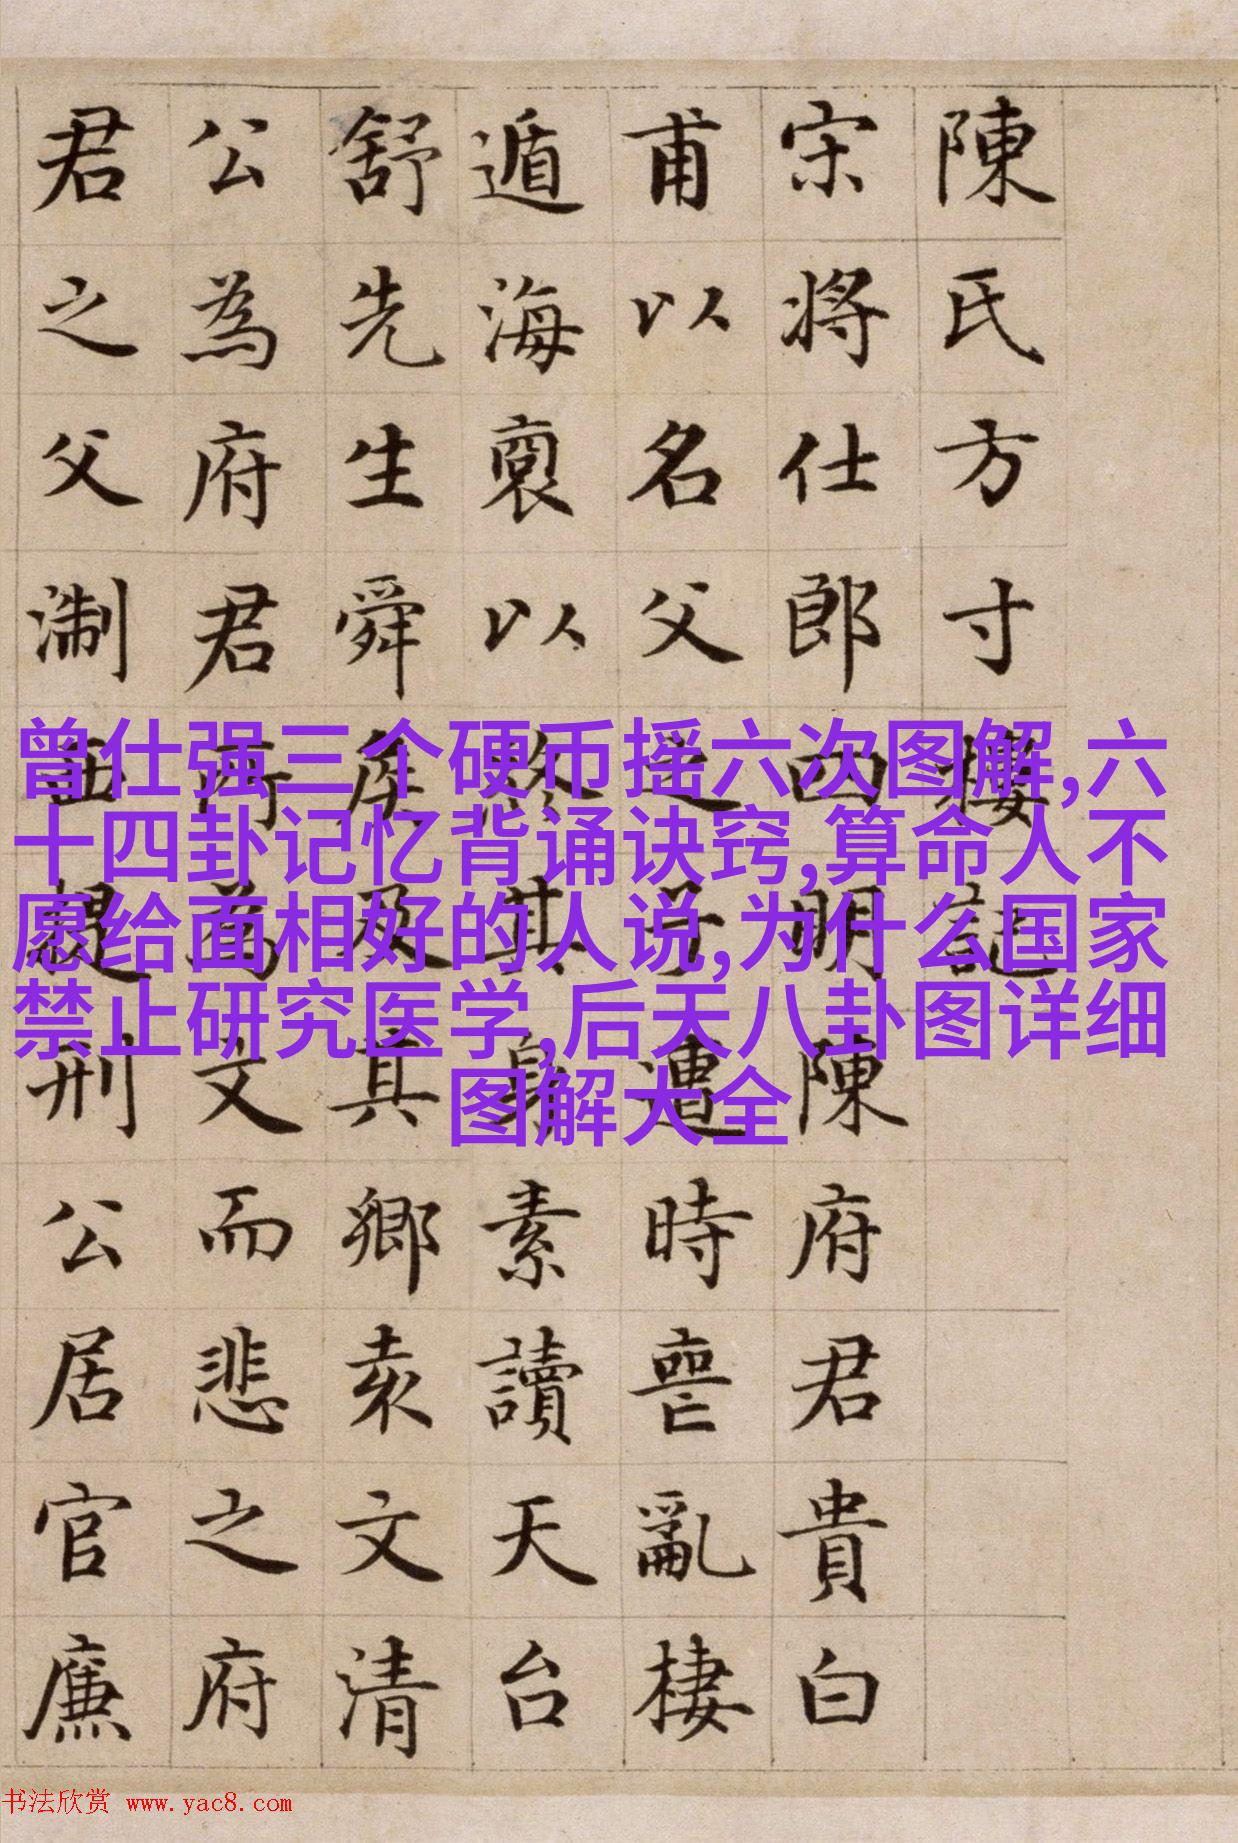 陳氏方寸樓記
宋將仕郎四明陳府君貴白
甫以名父之子遭時喪亂棲
遁海裔以終其身素讀天台
舒先生舜侯及其鄉袁文清
公為府君所為文而悲之府
君之父淛西提刑公居官廉
曾仕强三个硬币摇六次图解,六
十四卦记忆背诵诀窍,算命人不
愿给面相好的人说,为什么国家
禁止研究医学,后天八卦图详细
图解大全
书法欣赏 www.yac8.com